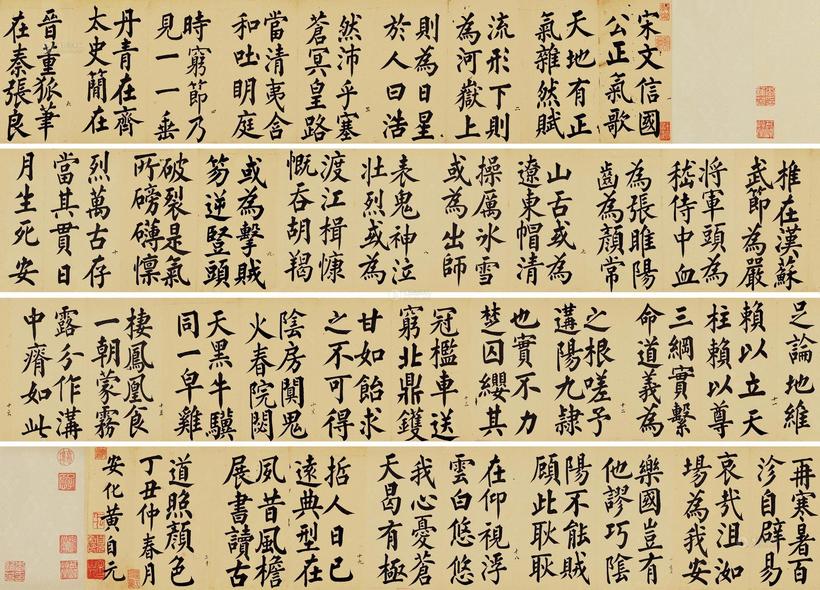 宋文信國
公正氣歌
天地有正
氣雜然賦
流形下則
為河嶽上
則為日星
於人曰浩
然沛乎塞
蒼冥皇路
當清夷含
和吐明庭
時窮節乃
見一一垂
丹青在齊
太史簡在
晉董狐筆
在秦張良
推在漢蘇
武節為嚴
將軍頭為
嵇侍中血
為張睢陽
齒為顏常
山舌或為
遼東帽清
操厲冰雪
或為出師
表鬼神泣
壯烈或為
渡江楫慷
慨吞胡羯
或為擊賊
笏逆豎頭
破裂是氣
所磅礴懍
烈萬古存
當其貫日
月生死安
足論地維
賴以立天
柱賴以尊
三綱實繫
命道義為
之根嗟予
遘陽九隸
也實不力
楚囚纓其
冠檻車送
窮北鼎鑊
甘如飴求
之不可得
陰房闃鬼
火春院閟
天黑牛驥
同一皁雞
棲鳳凰食
一朝蒙霧
露分作溝
中瘠如此
再寒暑百
沴自辟易
哀哉沮洳
場為我安
樂國豈有
他謬巧陰
陽不能賊
顧此耿耿
在仰視浮
雲白悠悠
我心憂蒼
天曷有極
哲人日已
遠典型在
夙昔風檐
展書讀古
道照顏色
丁丑仲春月
安化黃自元